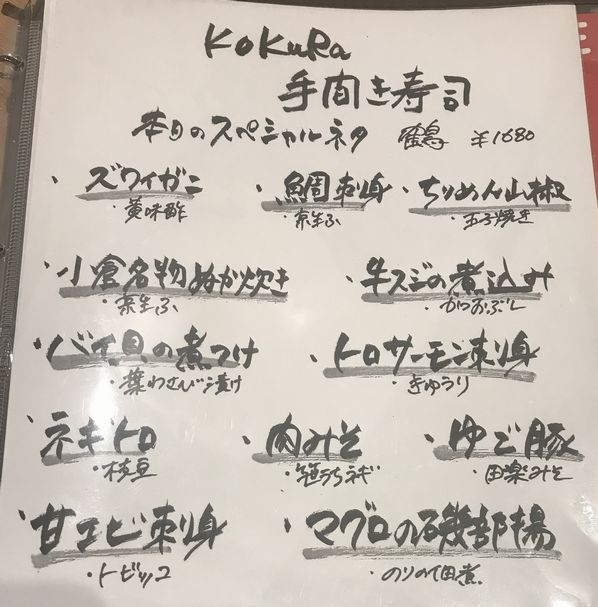 KoKuRa
手間き寿司
本日のスペシャルネタ 鶴 ¥1680
・ズワイガニ ・鯛刺身 ・ちりめん山椒
黄味酢 ・京生ふ ・玉子焼き
・小倉名物ぬか炊き ・牛スジの煮込み
・京生ふ ・かつおぶし
・バイ貝の煮つけ ・トロサーモン刺身
・葉わさび漬け ・きゅうり
・ネギトロ ・肉みそ ・ゆで豚
・枝豆 ・笹うちネギ ・田楽みそ
・甘エビ刺身 ・マグロの磯部揚
・トビッコ ・のりの佃煮